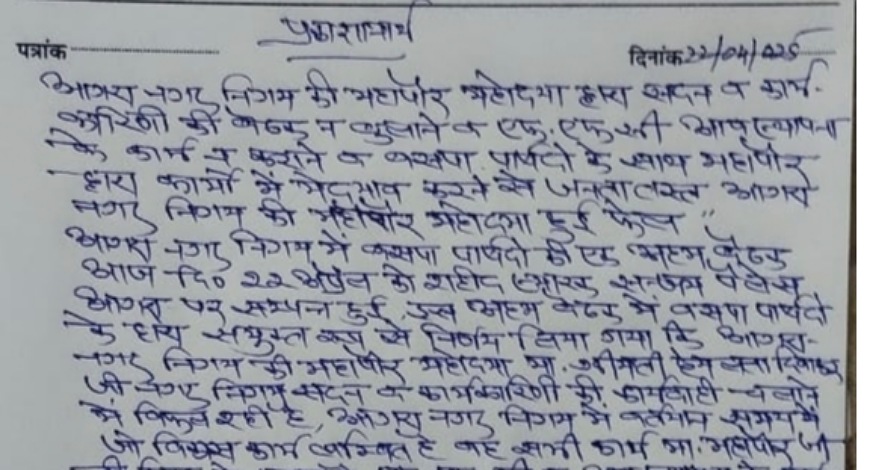 प्रकाशनार्थ
पत्रांक दिनांक 22/04/025
आगरा नगर निगम की महापौर महोदया द्वारा सदन व कार्य-
कारिणी की बैठक न बुलाने व एफ.एफ.सी
के कार्य न कराने व बसपा पार्षदो के साथ महापौर
द्वारा कार्यो में भेदभाव करने से जनता त्रस्त आगरा
नगर निगम की महापौर महोदया हुई फेल "
आगरा नगर निगम में बसपा पार्षदो की एक अहम बैठक
आज दि० 22 अप्रैल को शहीद स्मारक संजय पैलेस
आगरा पर सम्पन्न हुई, इस अहम बैठक में बसपा पार्षदो
के द्वारा संयुक्त रूप से निर्णय लिया गया कि आगरा-
नगर निगम की महापौर महोदया मा. श्रीमती हेमलता दिवाकर
जी नगर निगम सदन व कार्यकारिणी की कार्यवाही चलाने
में विफल रही है, आगरा नगर निगम में वर्तमान समय में
जो विकास कार्य लम्बित है वह सभी कार्य मा. महापौर जी